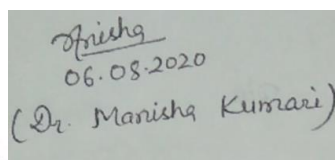 Anisha
06.08.2020
(Dr. Manisha Kumari)